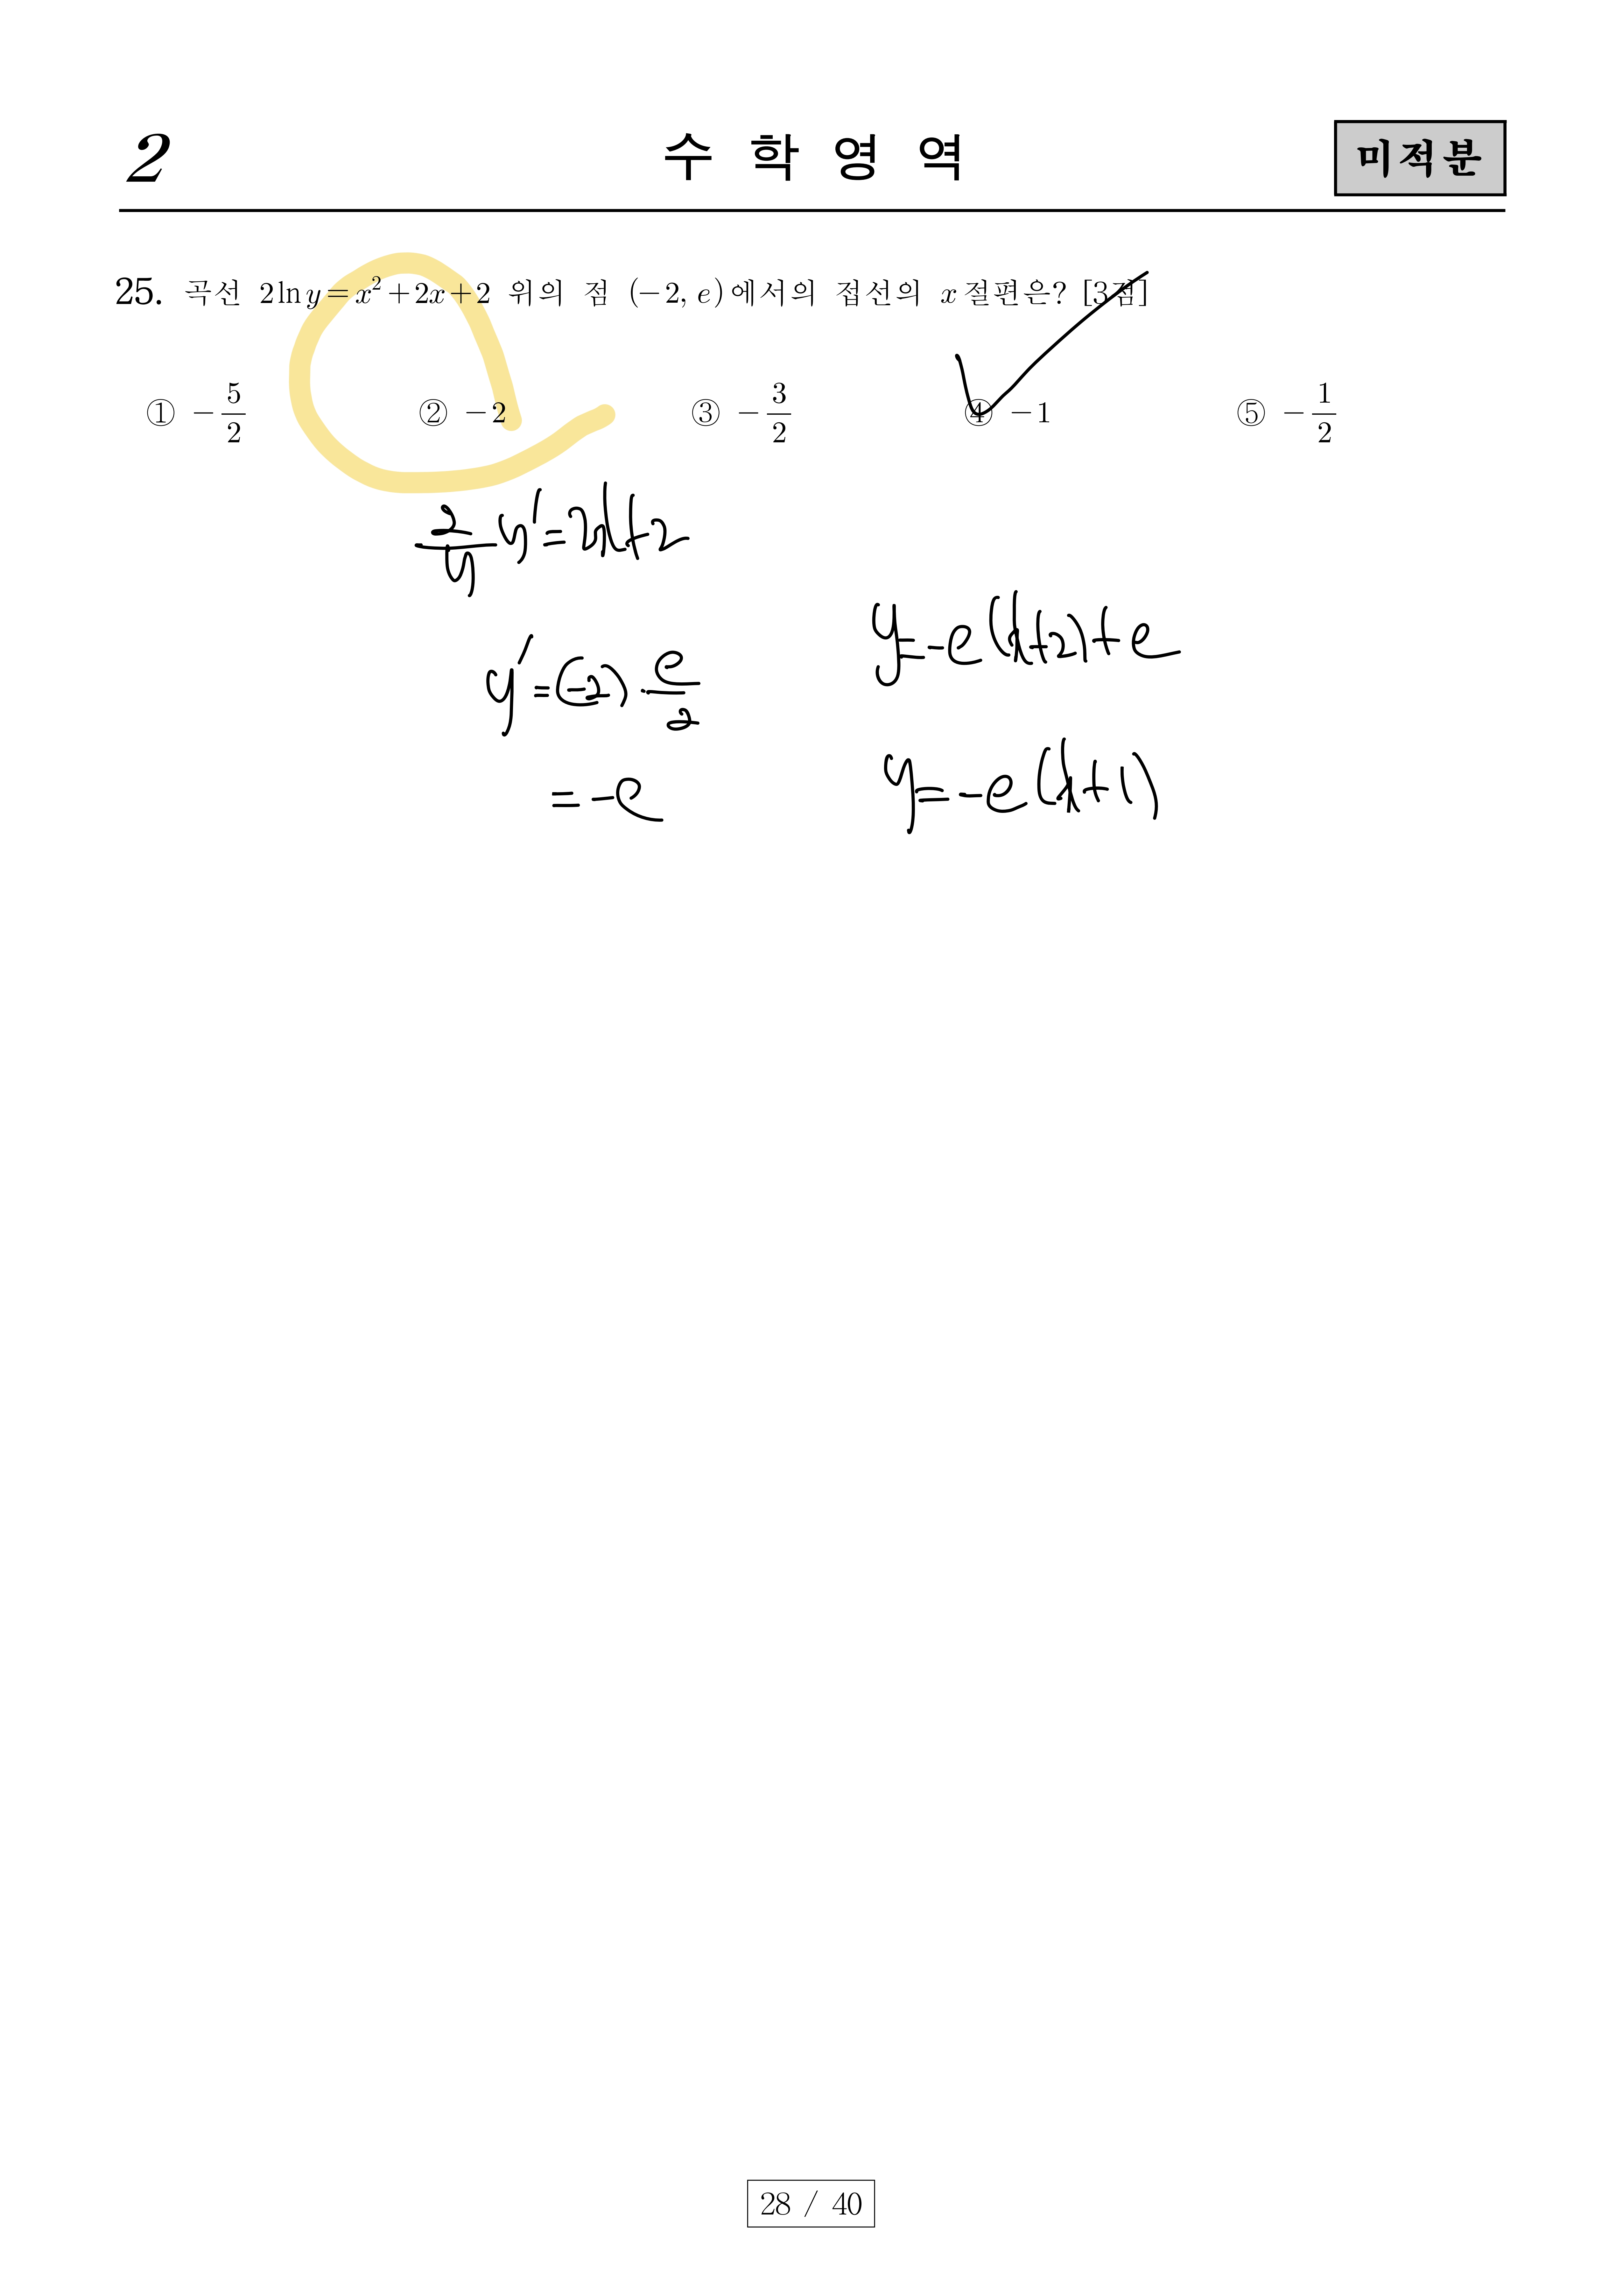 2 수 학 영 역 미적분
25. 곡선 2ln y = x² + 2x + 2 위의 점 (−2, e)에서의 접선의 x절편은? [3점]
① −5/2 ② −2 ③ −3/2 ④ −1 ⑤ −1/2
2/y y' = 2x+2
y' = (-2) · e/2
= -e
y = -e(x+2)+e
y = -e(x+1)
28 / 40